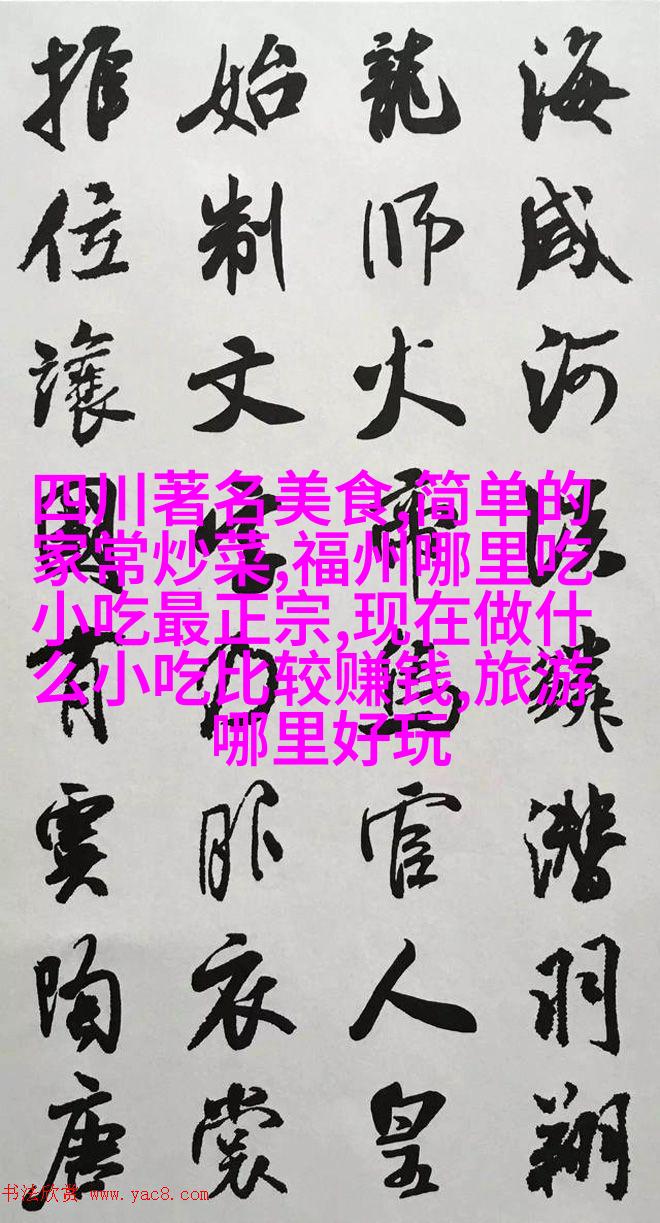 海咸河淡鱗潛羽翔
龍師火帝鳥官人皇
始制文字乃服衣裳
推位讓國有虞陶唐
四川著名美食,简单的
家常炒菜,福州哪里吃
小吃最正宗,现在做什
么小吃比较赚钱,旅游
哪里好玩
书法欣赏 www.yac8.com